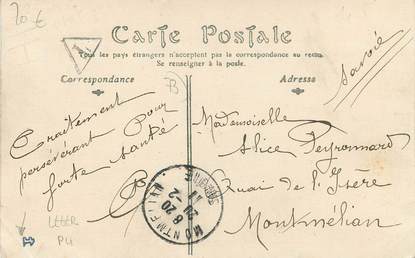 20 €
Carte Postale
Tous les pays étrangers n'acceptent pas la correspondance au recto.
Se renseigner à la poste.
Correspondance
Adresse
Savoie
B
Traitement
persévérant Pour
forte santé
B
Mademoiselle
Alice Peyronnard
Quai de l'Isère
Montmélian
MONTMELIAN
6 20
20 -2
11
SAVOIE